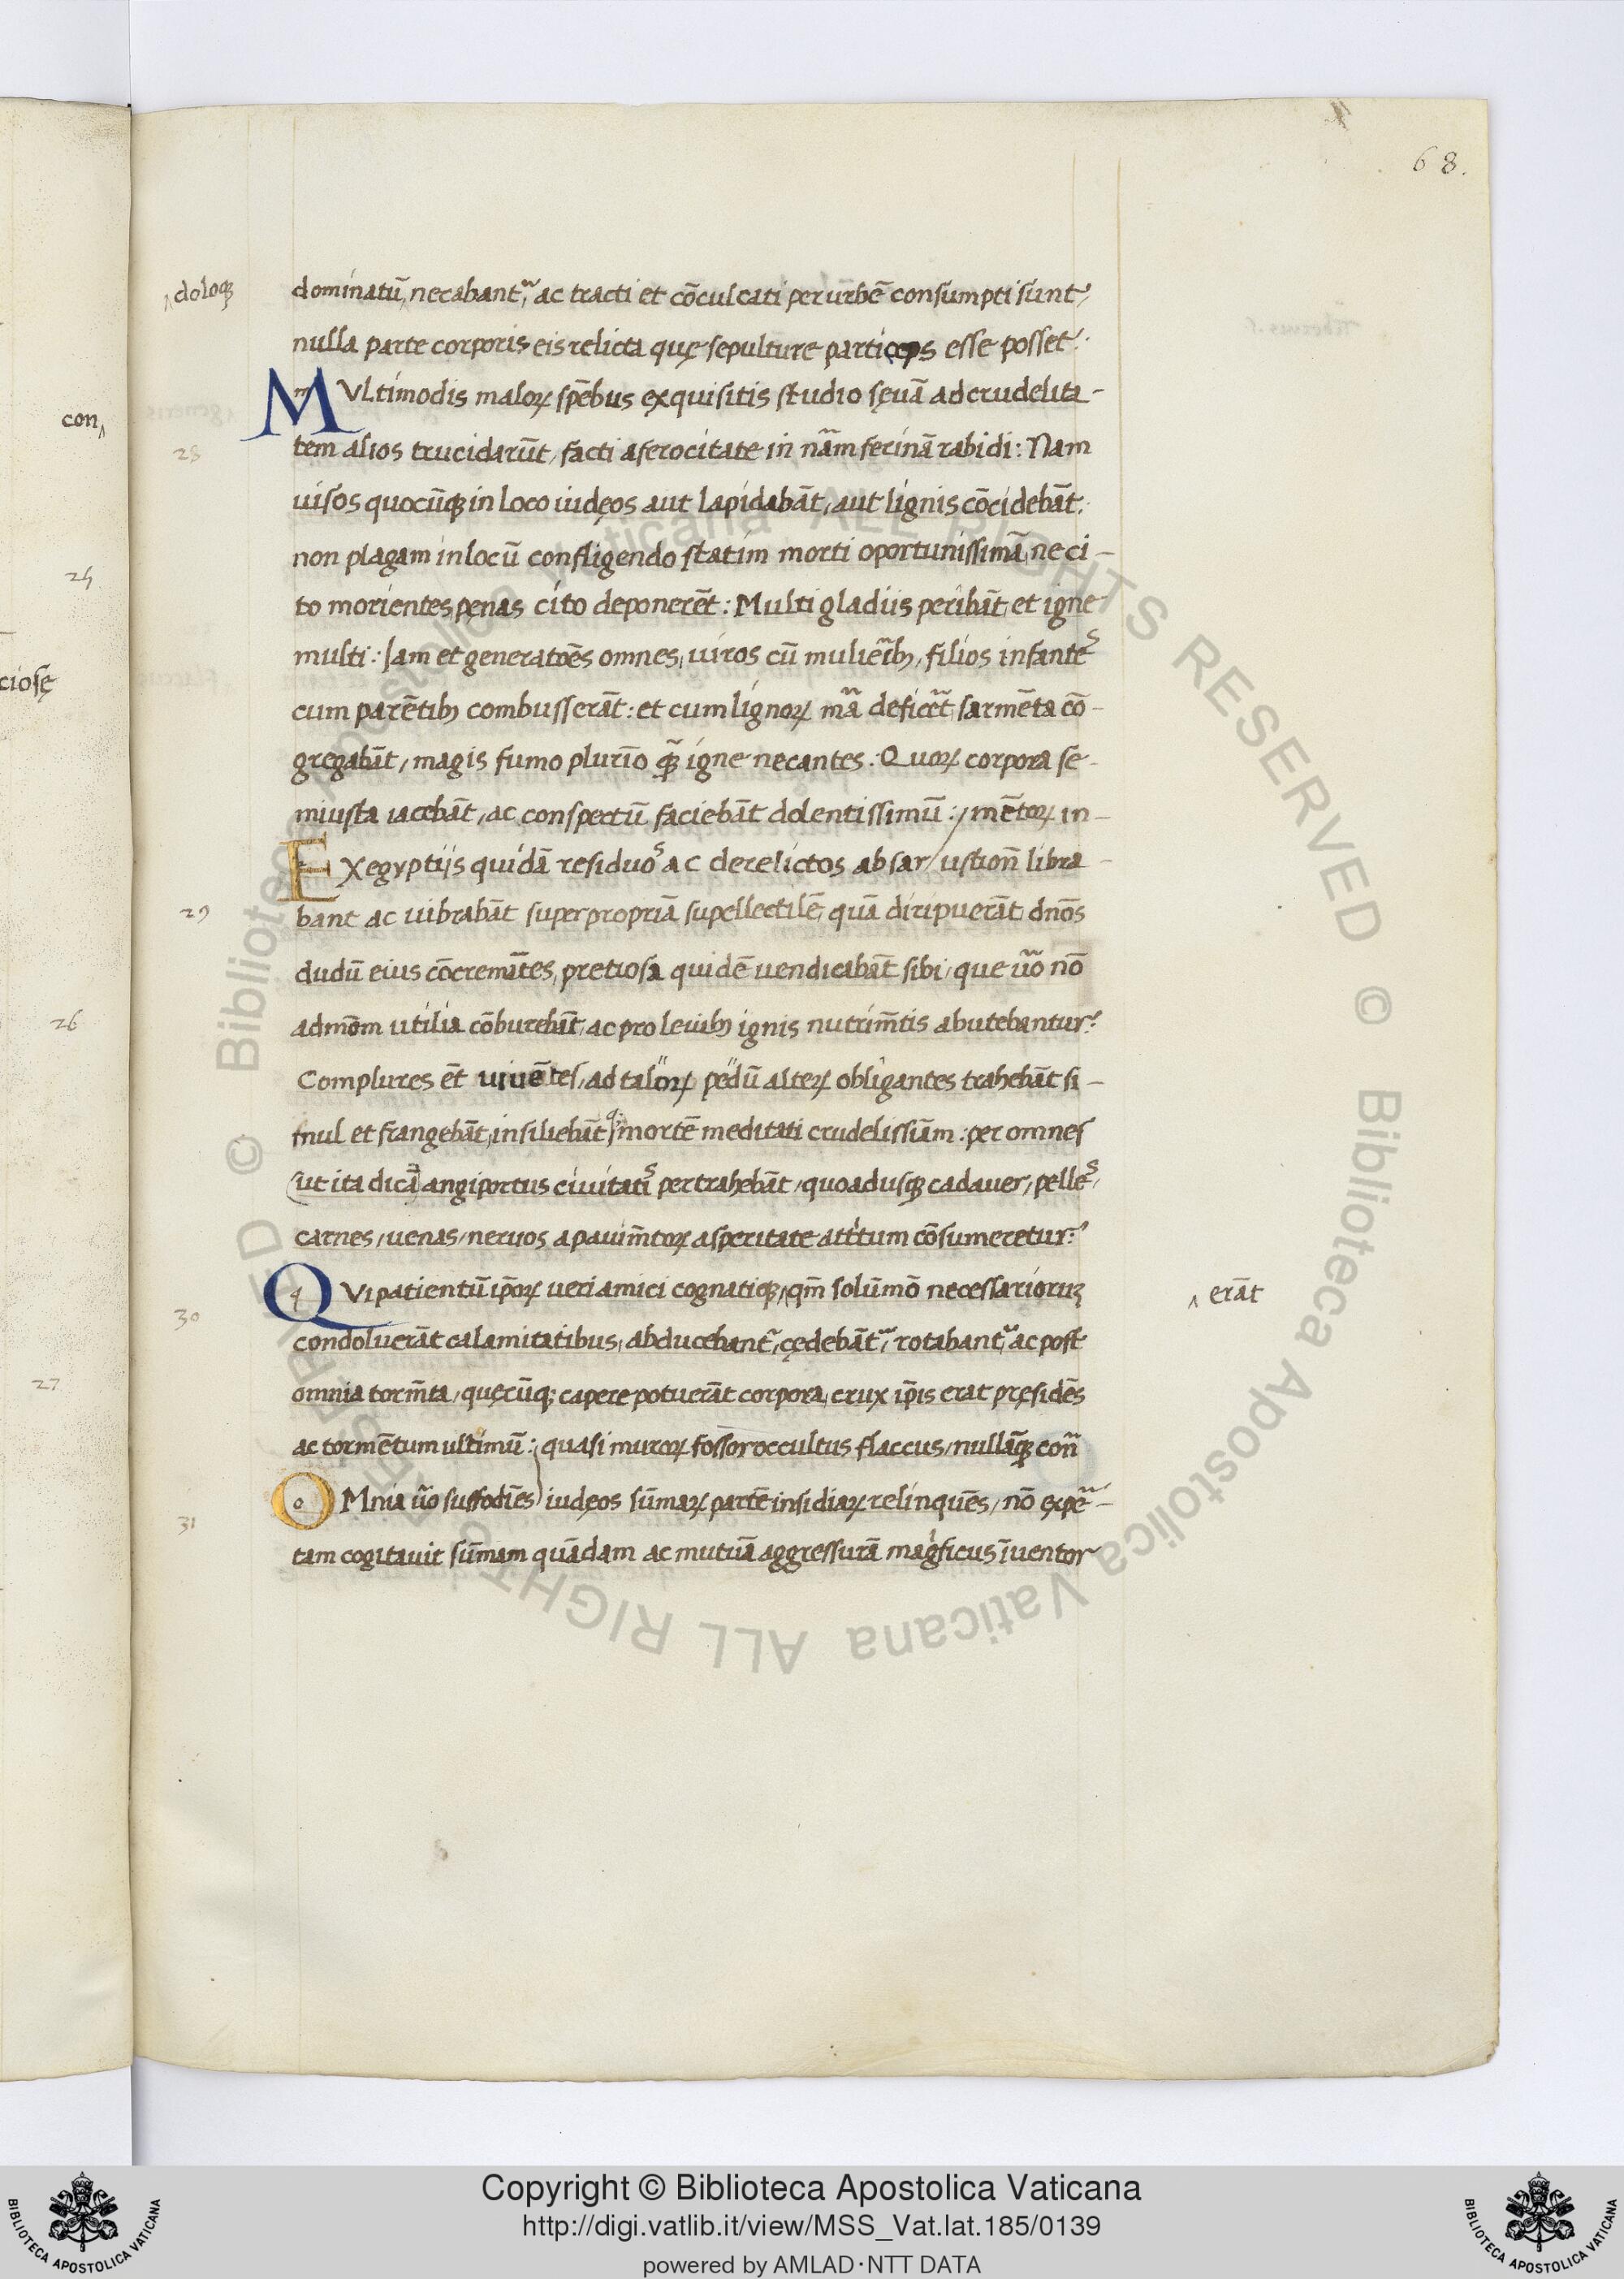 68.
doloq;
dominatũ, necabant᷑, ac tracti et cõculcati per urbẽ consumpti sunt,
nulla parte corporis eis relicta quę sepulture particeps esse posset.
MVltimodis maloꝝ spẽbus exquisitis studio sęuã ad crudelita-
28
tem alios trucidarũt, facti a ferocitate in nãm ferinã rabidi: Nam
uisos quocũq; in loco iudęos aut lapidabãt, aut lignis cõcidebãt.
non plagam in locũ confligendo statim morti oportunissimã, ne ci-
to morientes, pęnas cito deponerẽt: Multi gladiis peribãt, et igne
multi: Iam et generatoẽs omnes, uiros cũ muliẽrib;, filios infantes
cum parẽtib; combusserãt: et cum lignoꝝ mã deficẽt, sarmẽta cõ-
gregabãt, magis fumo plurĩo q̃; igne necantes. Quoꝝ corpora se-
miusta iacebãt, ac conspectũ faciebãt dolentissimũ: mẽtoꝝ in-
EX egyptijs quidã residuos ac derelictos ab sar/ustioñ libra-
29
bant ac uibrabãt super propriã supellectilẽ, quã diripuerãt, dnõs
dudũ eius cõcremãtes, pretiosa quidẽ uendicabãt sibi, que ũo nõ
admõm utilia cõburebãt, ac pro leuib; ignis nutrim̃tis abutebantur.
Complures eẽt uiuẽtes, ad taloꝝ pedũ alteꝝ obligantes trahebãt si-
mul et frangebãt, insiliebãtq; mortẽ meditati crudelissiãm: per omnes
(ut ita dicã) angiportus ciuitatis pertrahebãt, quoadusq; cadauer, pelles,
carnes, uenas, neruos a pauim̃toꝝ asperitate attritum cõsumeretur.
QVi patientũ ip̃oꝝ ueri amici cognatiq;, qm̃ solũmõ necessarioruꝫ
erãt
30
condoluerãt calamitatibus, abducebant᷑, cędebãt᷑, rotabant᷑, ac post
omnia torm̃ta, quęcũq; capere potuerãt corpora, crux ip̃is erat pręsidẽs
ac tormẽtum ultimũ: quasi muroꝝ fossor occultus flaccus, nullãq; coñ
OMnia ũo suffodiẽs iudęos sũmaꝝ partẽ insidiaꝝ relinquẽs, nõ expẽ-
31
tam cogitauit sũmam quãdam ac mutuã aggressurã magnificus ĩuentor
con
25
ciosę
26
27
Copyright © Biblioteca Apostolica Vaticana
http://digi.vatlib.it/view/MSS_Vat.lat.185/0139
powered by AMLAD·NTT DATA
BIBLIOTECA APOSTOLICA VATICANA
BIBLIOTECA APOSTOLICA VATICANA
© Biblioteca Apostolica Vaticana ALL RIGHTS RESERVED © Biblioteca Apostolica Vaticana ALL RIGHTS RESERVED